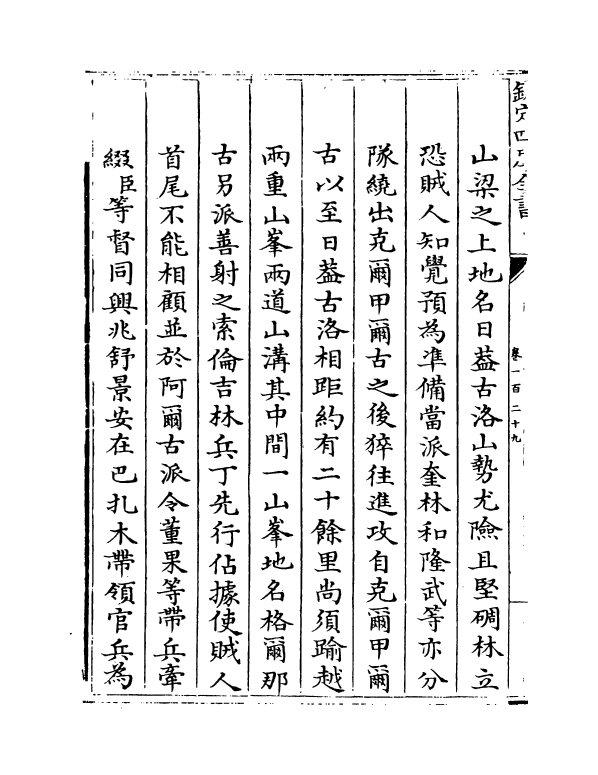 欽定四庫全書
卷一百二十九
山梁之上地名日葢古洛山勢尤險且堅碉林立
恐賊人知覺預為准備當派奎林和隆武等亦分
隊繞出克爾甲爾古之後猝往進攻自克爾甲爾
古以至日葢古洛相距約有二十餘里尚須踰越
兩重山峯兩道山溝其中間一山峯地名格爾那
古另派善射之索倫吉林兵丁先行佔據使賊人
首尾不能相顧並於阿爾古派令董果等帶兵牽
綴臣等督同興兆舒景安在巴扎木帶領官兵為